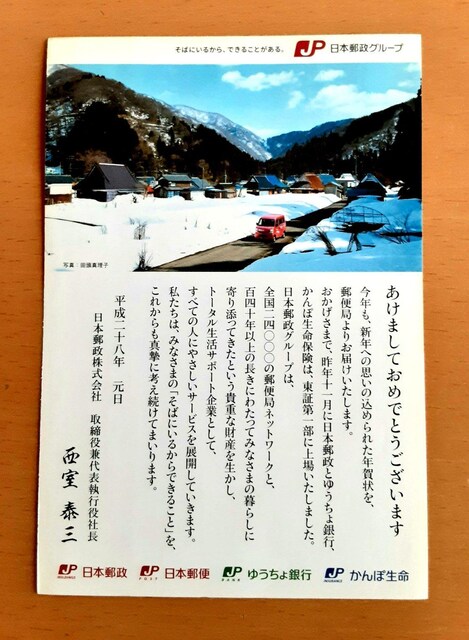 そばにいるから、できることがある。
JP 日本郵政グループ
写真：田頭真理子
あけましておめでとうございます
今年も、新年への思いの込められた年賀状を、
郵便局よりお届けいたします。
おかげさまで、昨年十一月に日本郵政とゆうちょ銀行、
かんぽ生命保険は、東証第一部に上場いたしました。
日本郵政グループは、
全国二四〇〇〇の郵便局ネットワークと、
百四十年以上の長きにわたってみなさまの暮らしに
寄り添ってきたという貴重な財産を生かし、
トータル生活サポート企業として、
すべての人にやさしいサービスを展開していきます。
私たちは、みなさまの「そばにいるからできること」を、
これからも真摯に考え続けてまいります。
平成二十八年　元日
日本郵政株式会社　取締役兼代表執行役社長
西室泰三
JP HOLDINGS 日本郵政
JP POST 日本郵便
JP BANK ゆうちょ銀行
JP INSURANCE かんぽ生命